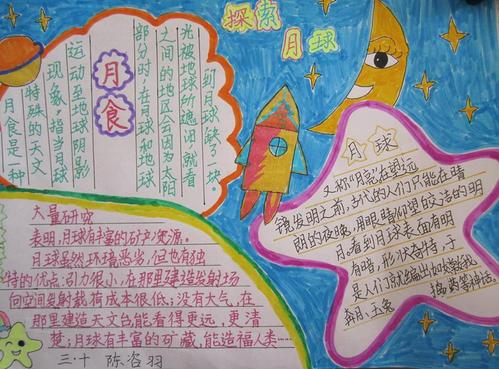 探索
月球
月食
月食是一种
特殊的天文
现象,指当月球
运动至地球阴影
部分时,在月球和地球
之间的地区会因为太阳
光被地球所遮闭,就看
到月球缺了一块。
月球
又称“月亮”在望远
镜发明之前,古代的人们只能在晴
朗的夜晚,用眼睛仰望皎洁的明
月看到月球表面有明
有暗,形状奇特,于
是人们就编出如嫦娥
奔月,玉兔捣药等神话。
大量研究
表明,月球有丰富的矿产资源。
月球虽然环境恶劣,但也有独
特的优点:引力很小,在那里建造发射场
向空间发射载有成本很低;没有大气,在
那里建造天文台能看得更远,更清
楚;月球有丰富的矿藏,能造福人类……
三·十 陈咨羽